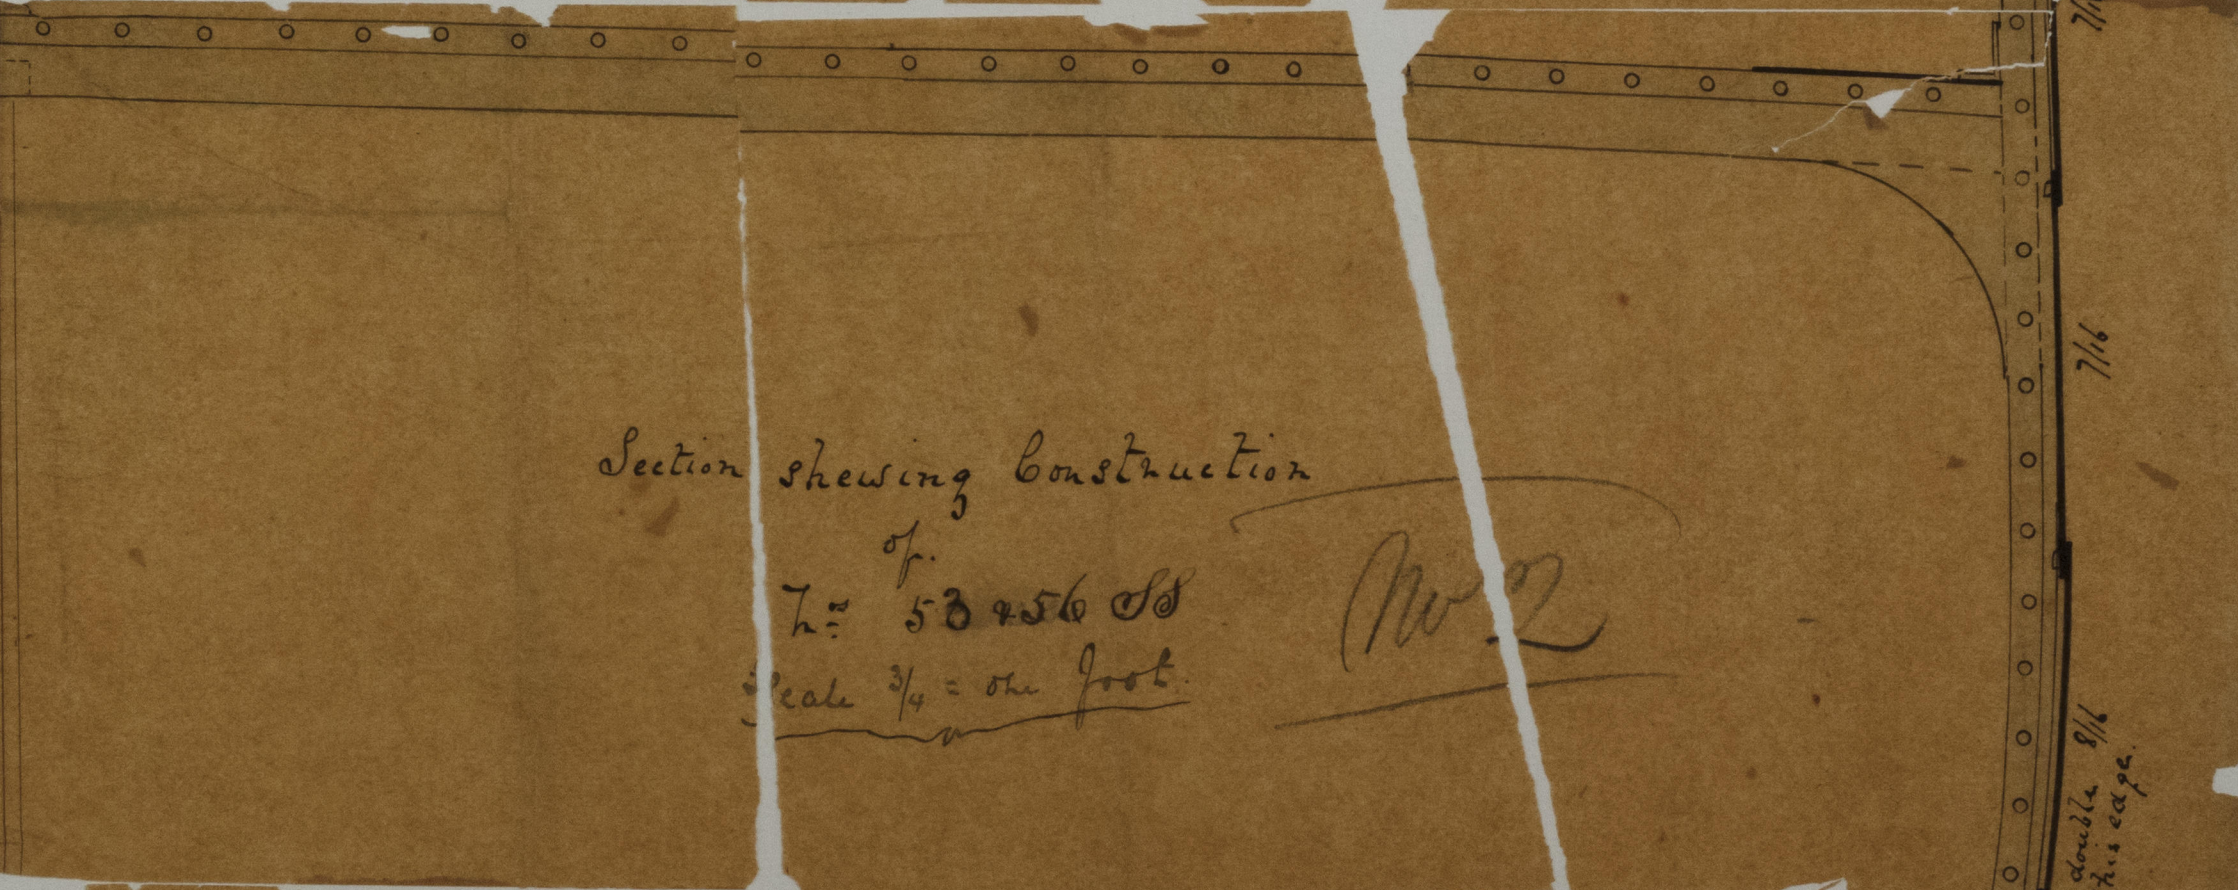 Section shewing Construction
of.
Nos 53 & 56 SS
Scale 3/4 = one foot.
No 2
7/16
7/16
double 8/16
this edge.